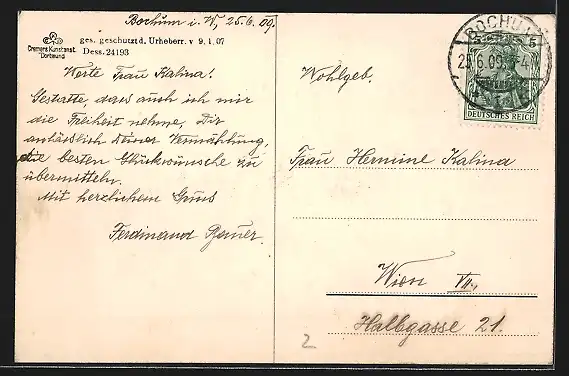 Bochum i. W, 25.6.09.
ges. geschützt d. Urheberr. v 9.1.07
Cremers Kunstanst.
Dortmund
Dess. 24193
Werte Frau Kalina!
Gestatte, dass auch ich mir
die Freiheit nehme, Dir
anlässlich Deiner Vermählung,
die besten Glückwünsche zu
übermitteln.
Mit herzlichem Gruss
Ferdinand Bauer.
BOCHUM
5
25.6.09.
DEUTSCHES REICH
Wohlgeb.
Frau Hermine Kalina
Wien VII.,
Halbgasse 21.
2